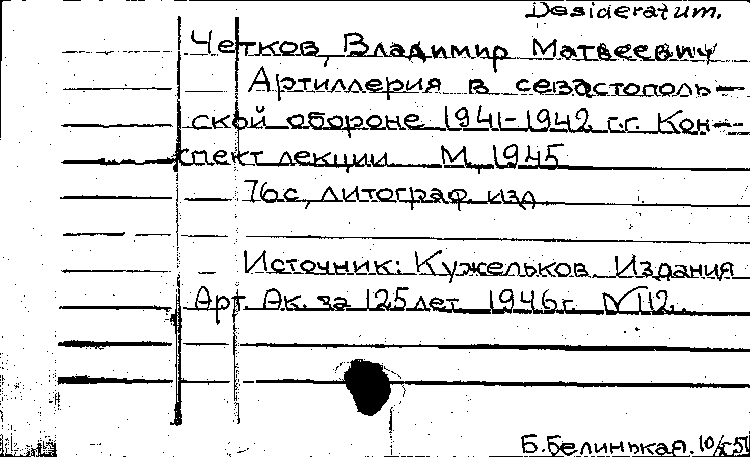 Desideratum.
Четков, Владимир Матвеевич
Артиллерия в севастополь-
ской обороне 1941-1942 г.г. Кон-
спект лекции М, 1945
76с, литограф. изд
Источник: Кужельков. Издания
Арт. Ак. за 125 лет 1946г. №112.
Б.Белинькая. 10/X 51